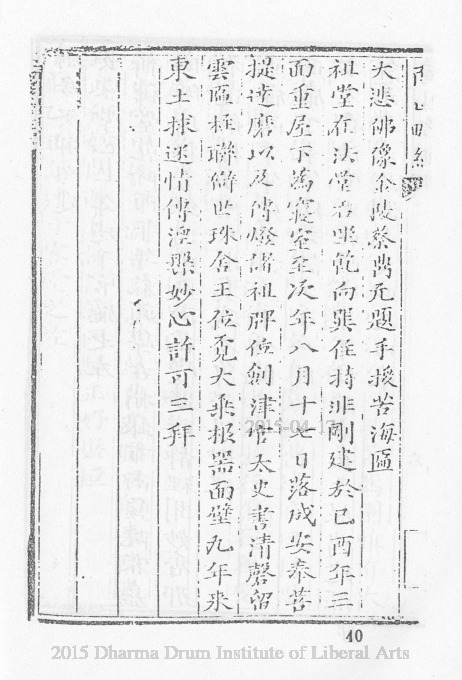 大悲佛像金陵蔡常元題手援苦海匾
祖堂在法堂右坐乾向巽住持非剛建於己酉年三
面重屋下為寢室至次年八月十七日落成安奉菩
提達磨以及傳燈諸祖牌位劍津 太史書清磬留
雲匾柱聯辭世珠舍王位覓大乘根器面壁九年來
東土救迷情傳法器妙心許可三拜
2015-04-13
40
2015 Dharma Drum Institute of Liberal Arts